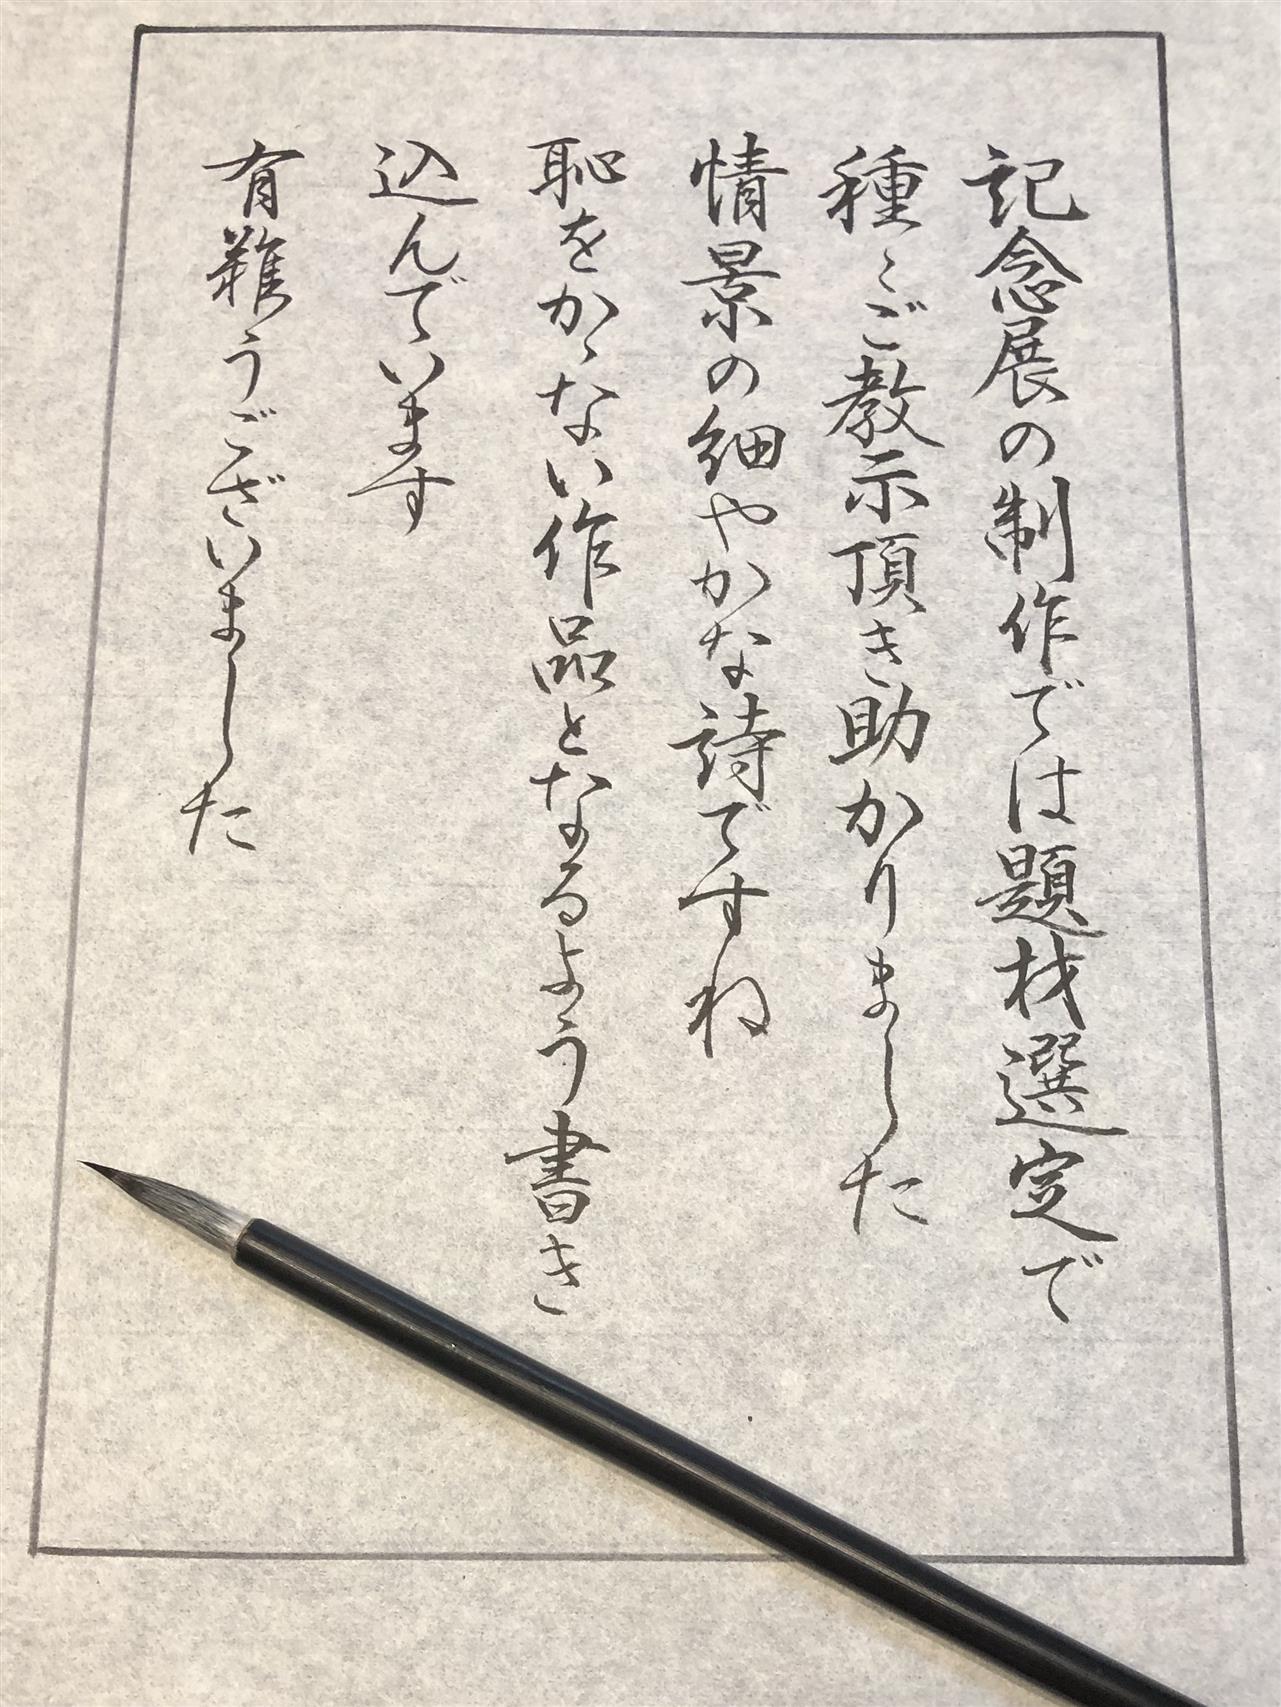 記念展の制作では題材選定で
種々ご教示頂き助かりました
情景の細やかな詩ですね
恥をかゝない作品となるよう書き
込んでいます
有難うございました